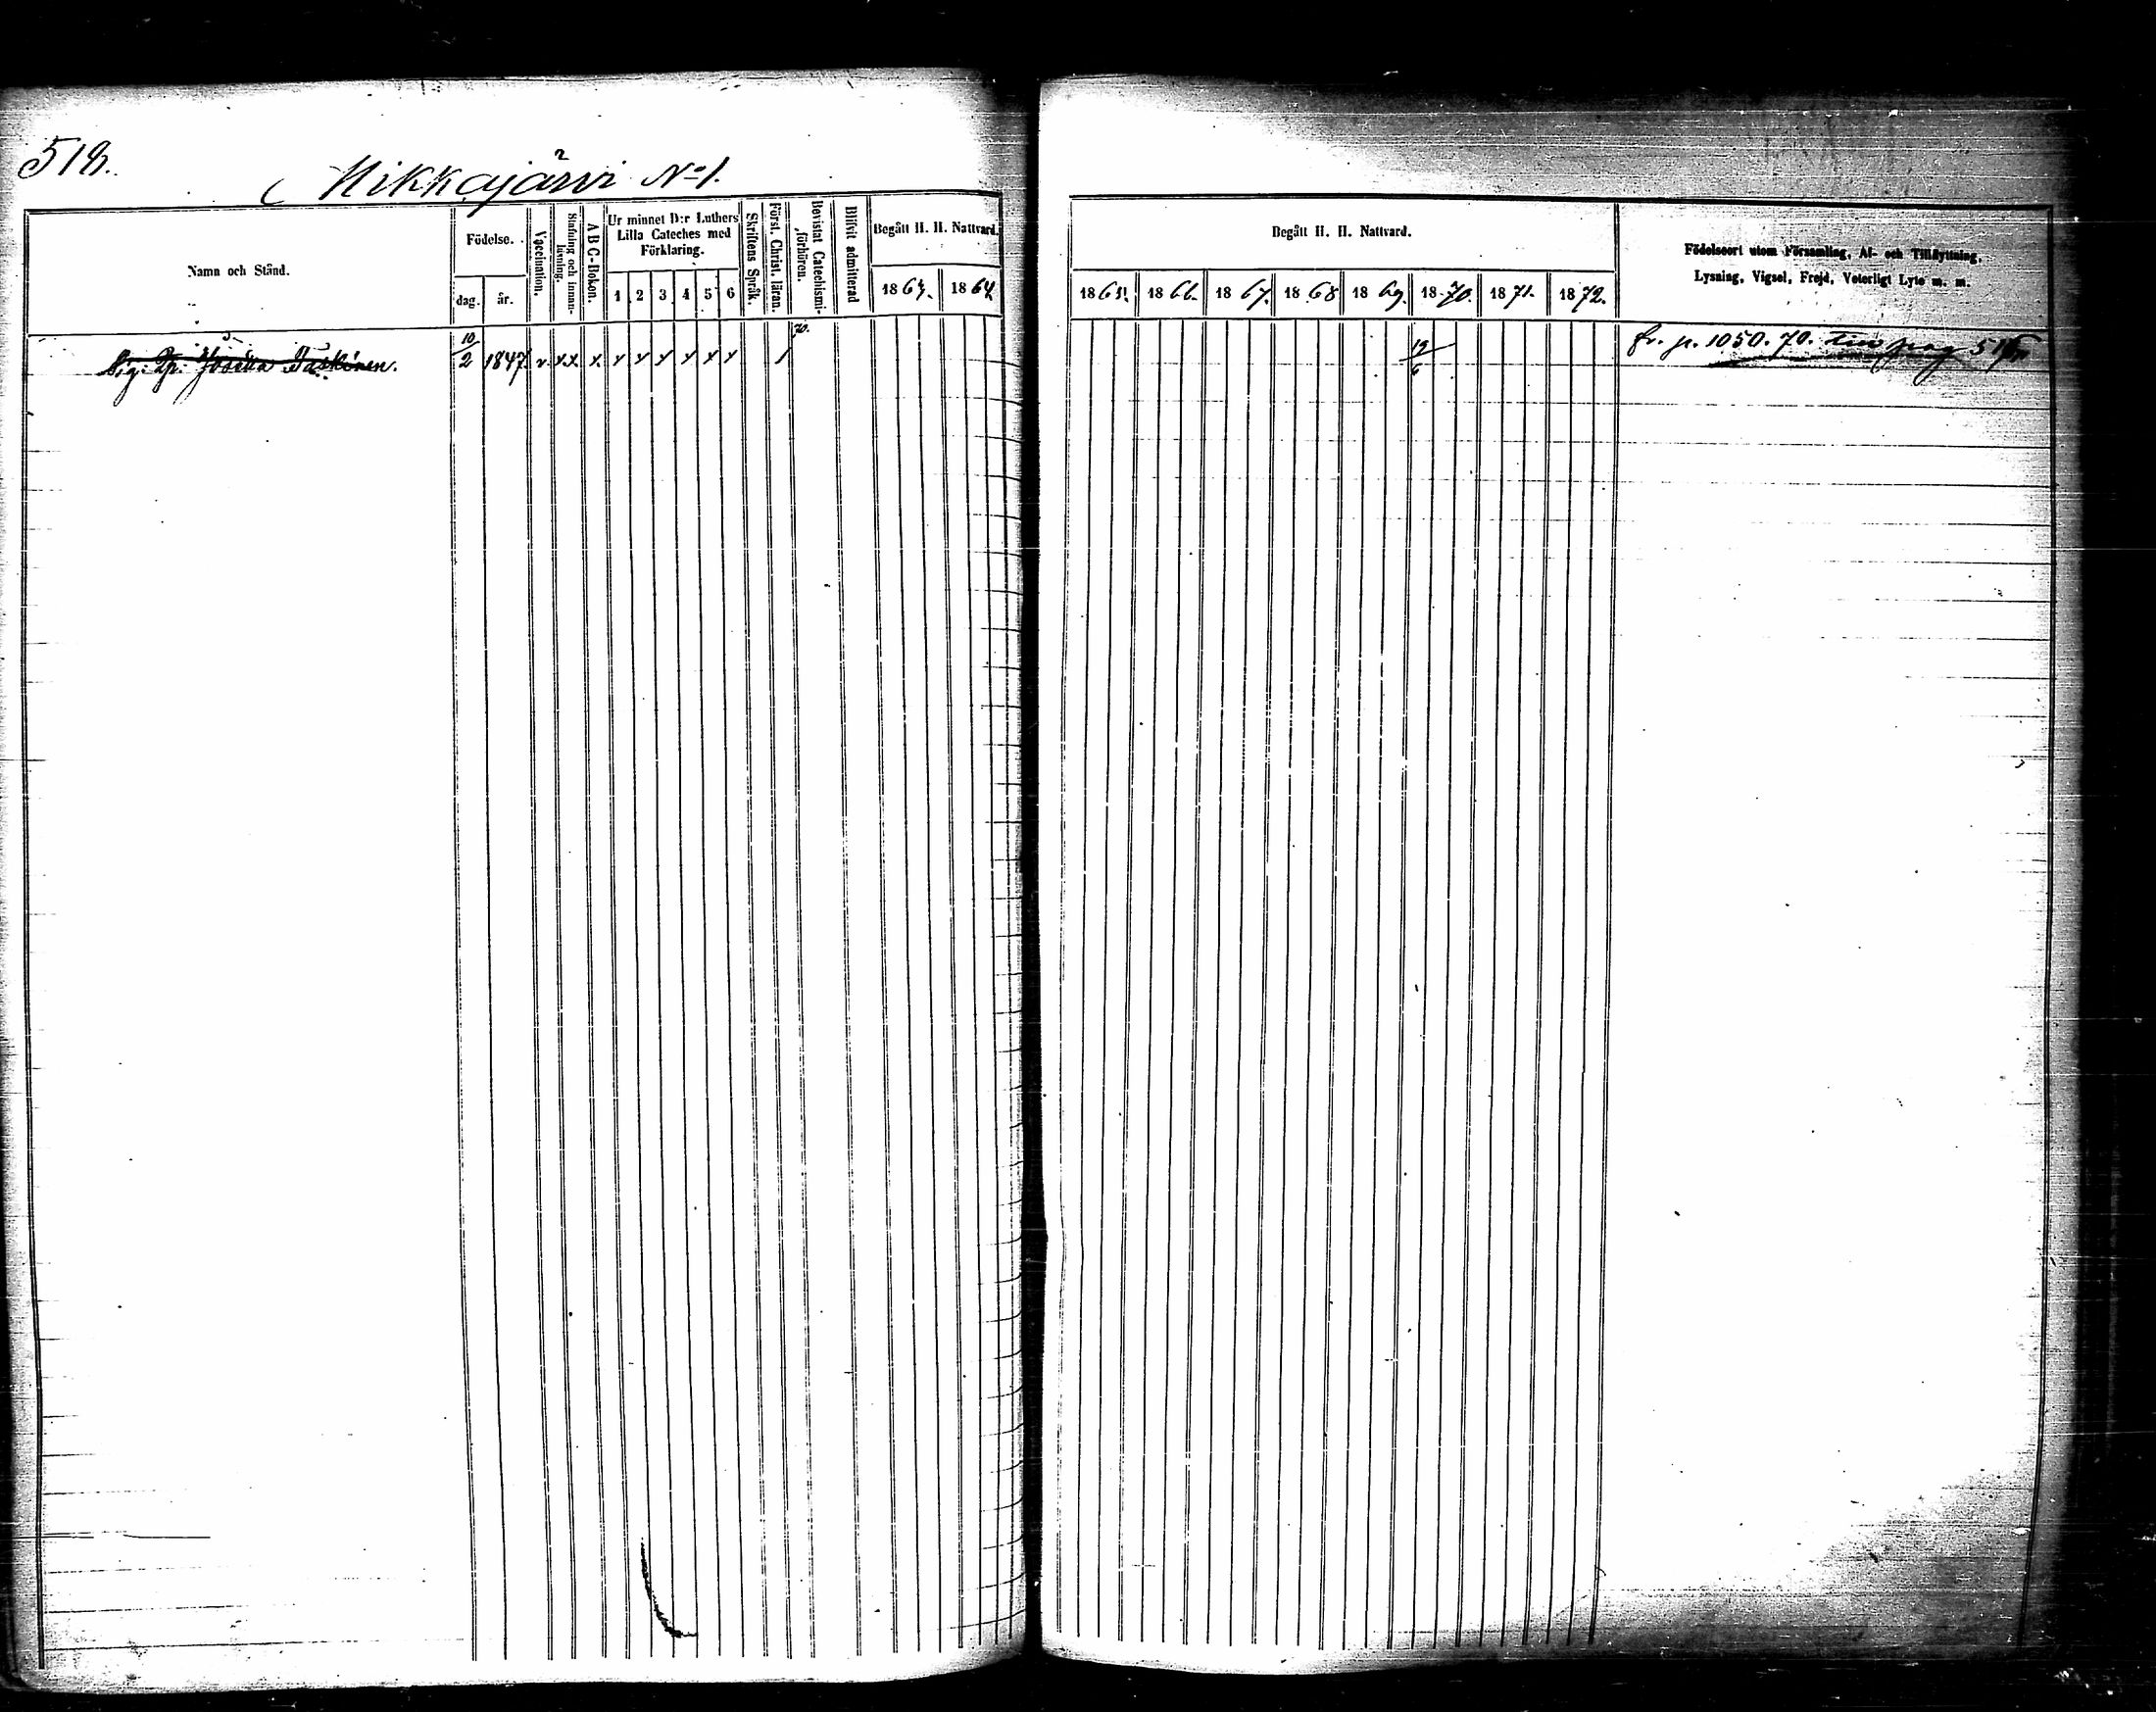 518.
Mikkajärvi No 1.
Namn och Stånd.
Födelse.
dag.
år.
Vaccination.
Stafning och innan-läsning.
A B C-Boken.
Ur minnet D:r Luthers
Lilla Cateches med
Förklaring.
1 2 3 4 5 6
Skriftens Språk.
Först. Christ. läran.
Bevistat Catechismi-förhören.
Blifvit admitterad
Begått H. H. Nattvard.
1863. 1864.
Begått H. H. Nattvard.
1865. 1866. 1867. 1868 1869. 1870. 1871. 1872.
Födelseort utom Församling, Af- och Tillflyttning,
Lysning, Vigsel, Frejd, Veterligt Lyte m. m.
Josefva Taskinen. 10/2 1847 v. x x. x. x x x x x x 1 70. 19/6 fr. p. 1050. 70. pag